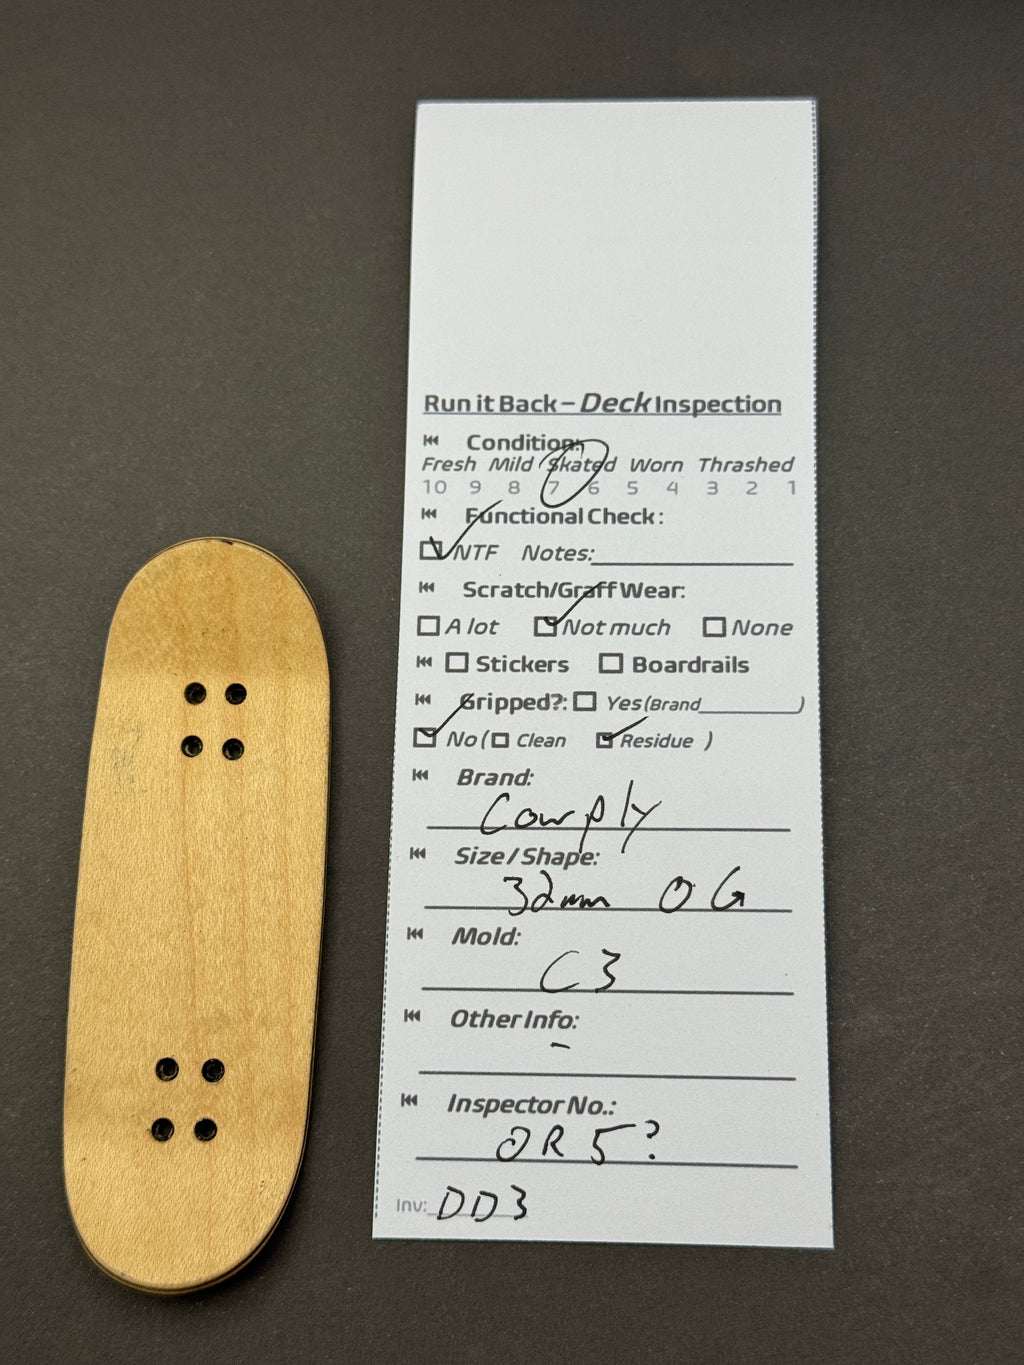 Run it Back – Deck Inspection
Condition:
Fresh Mild Skated Worn Thrashed
10 9 8 7 6 5 4 3 2 1
Functional Check:
NTF Notes:
Scratch/Graff Wear:
A lot Not much None
Stickers Boardrails
Gripped?: Yes (Brand )
No ( Clean Residue )
Brand:
Cowply
Size / Shape:
32mm OG
Mold:
C3
Other Info:
-
Inspector No.:
OR5?
Inv: DD3